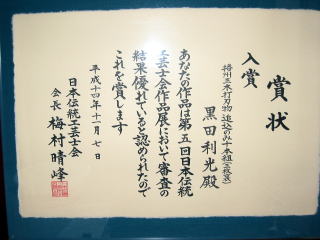 賞状
入賞
播州三木打刃物 追込のみ十本組(表裏)
黒田利光殿
あなたの作品は第五回日本伝統
工芸士会作品展において審査の
結果優れていると認められたので
これを賞します
平成十四年十一月七日
日本伝統工芸士会
会長 梅村晴峰